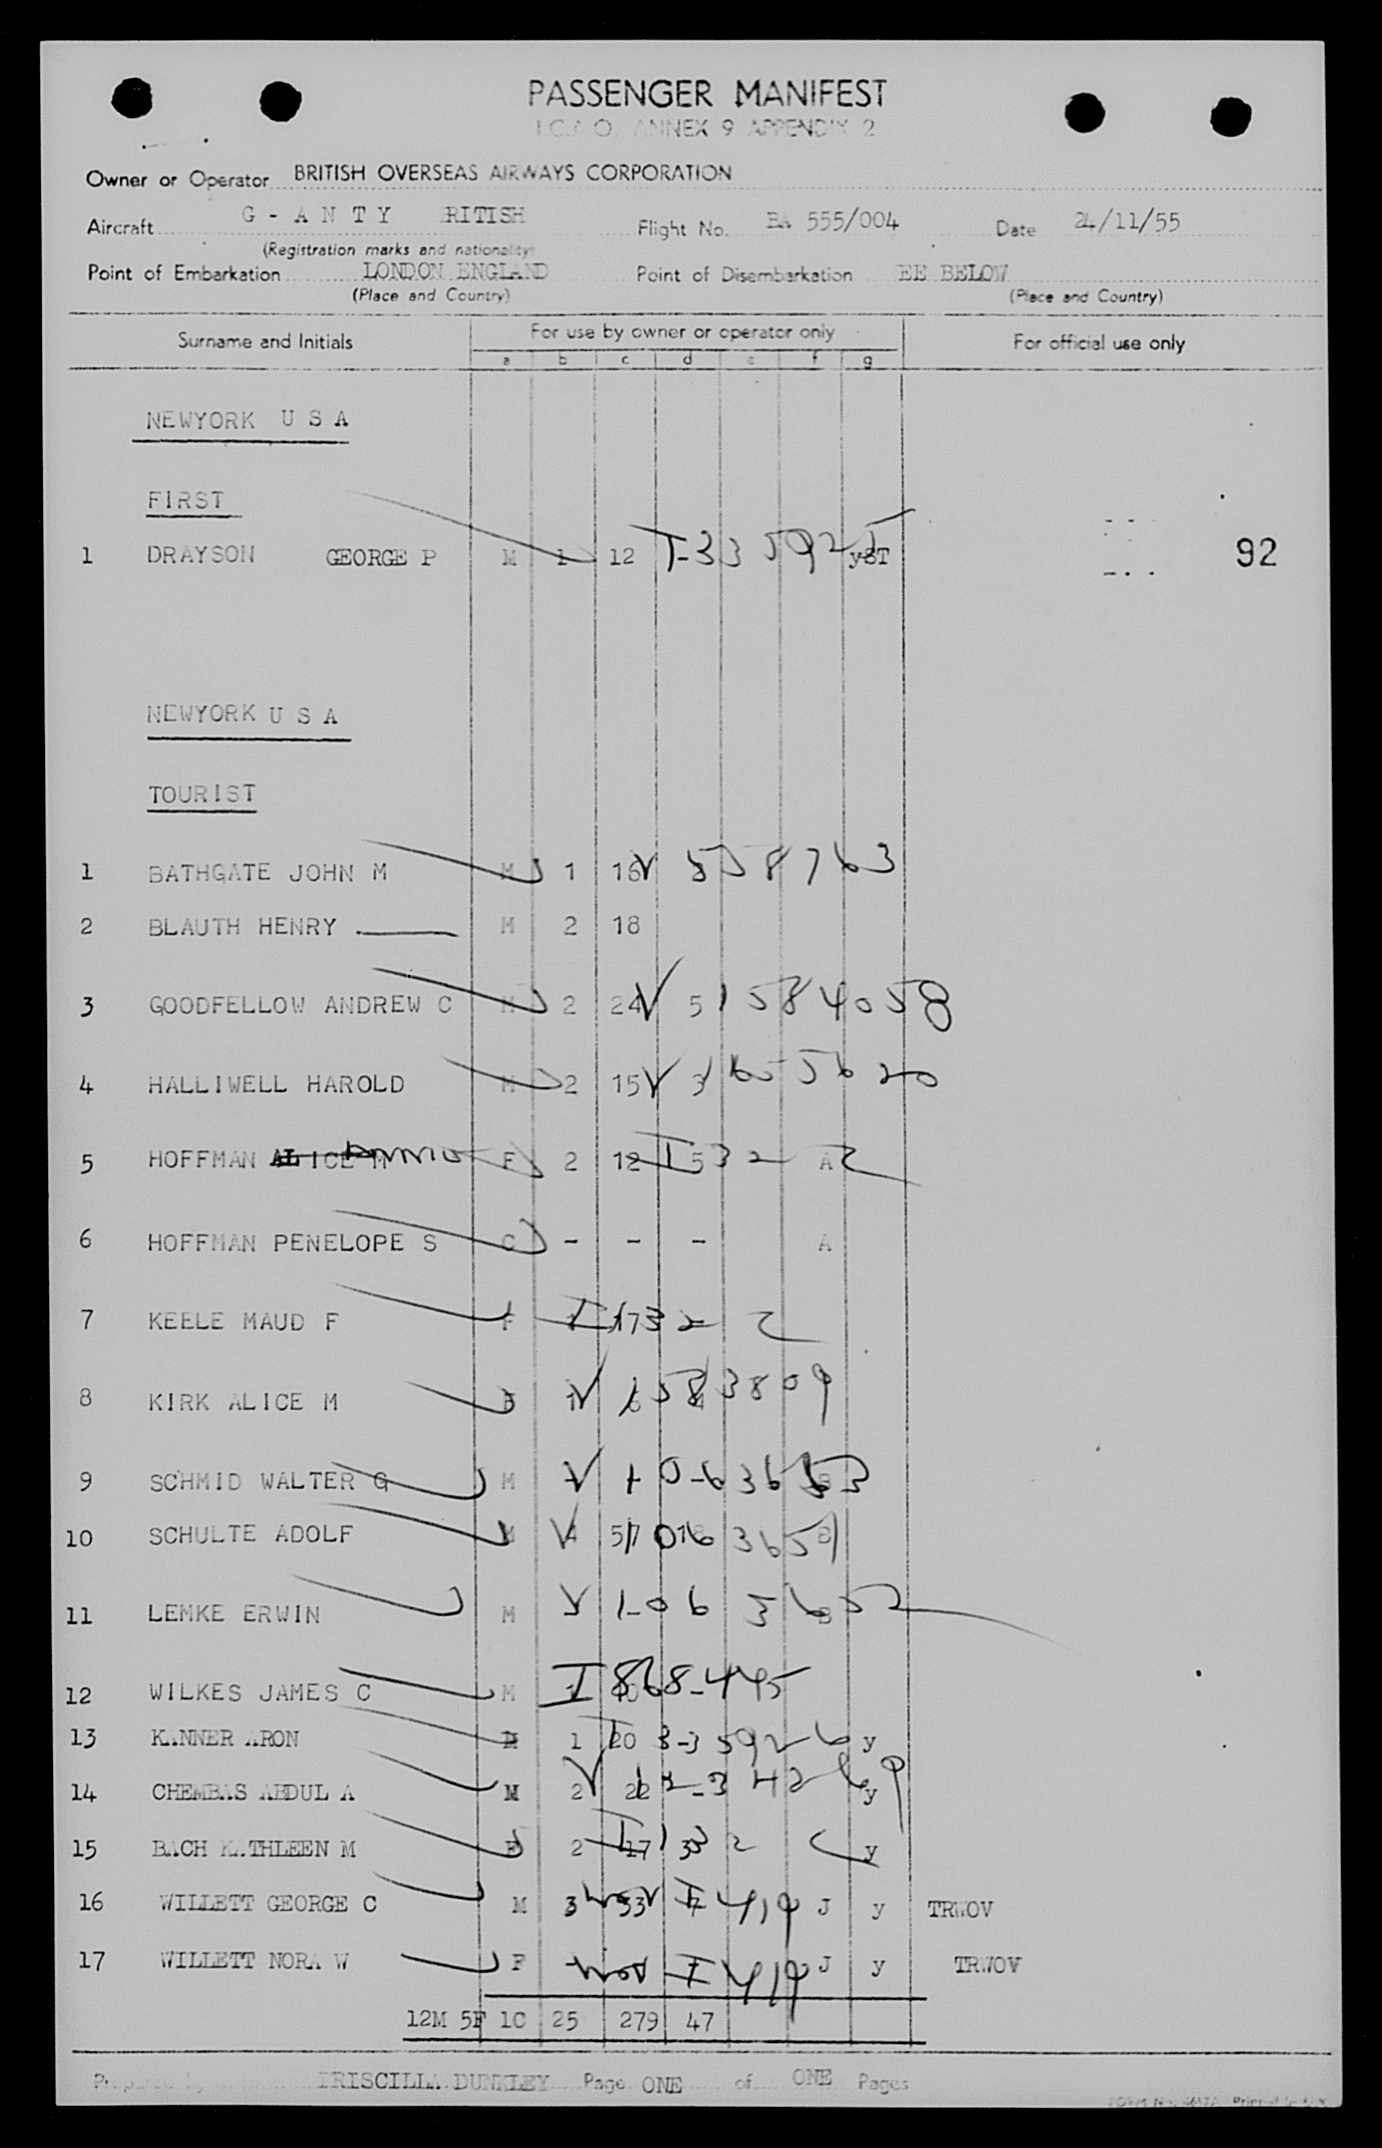 PASSENGER MANIFEST
I.C.A.O. ANNEX 9 APPENDIX 2
Owner or Operator BRITISH OVERSEAS AIRWAYS CORPORATION
Aircraft G - A N T Y RITISH Flight No. BA 555/004 Date 24/11/55
(Registration marks and nationality)
Point of Embarkation LONDON ENGLAND Point of Disembarkation EE BELOW
(Place and Country) (Place and Country)
Surname and Initials For use by owner or operator only For official use only
a b c d e f g
NEWYORK U S A
FIRST
1 DRAYSON GEORGE P M 1 12 I-335925 yST 92
NEWYORK U S A
TOURIST
1 BATHGATE JOHN M M 1 16 V 558763
2 BLAUTH HENRY M 2 18
3 GOODFELLOW ANDREW C M 2 24 V 5 1584058
4 HALLIWELL HAROLD M 2 15 V 3
5 HOFFMAN ALICE M F 2 12 I 5 32 A
6 HOFFMAN PENELOPE S C - - - A
7 KEELE MAUD F F I 17 32
8 KIRK ALICE M F V 1583809
9 SCHMID WALTER G M V 10-636
10 SCHULTE ADOLF M V 57 B
11 LEMKE ERWIN M V 1-063652 B
12 WILKES JAMES C M I 868-445
13 KANNER ARON M 1 20 I 3-35926 y
14 CHEMBAS ABDUL A M 2 V 22 y
15 BACH KATHLEEN M F 2 I 17 132 y
16 WILLETT GEORGE C M 3 53 I 419 J y TRWOV
17 WILLETT NORA W F I 419 J y TRWOV
12M 5F 1C 25 279 47
Prepared by PRISCILLA DUNKLEY Page ONE of ONE Pages